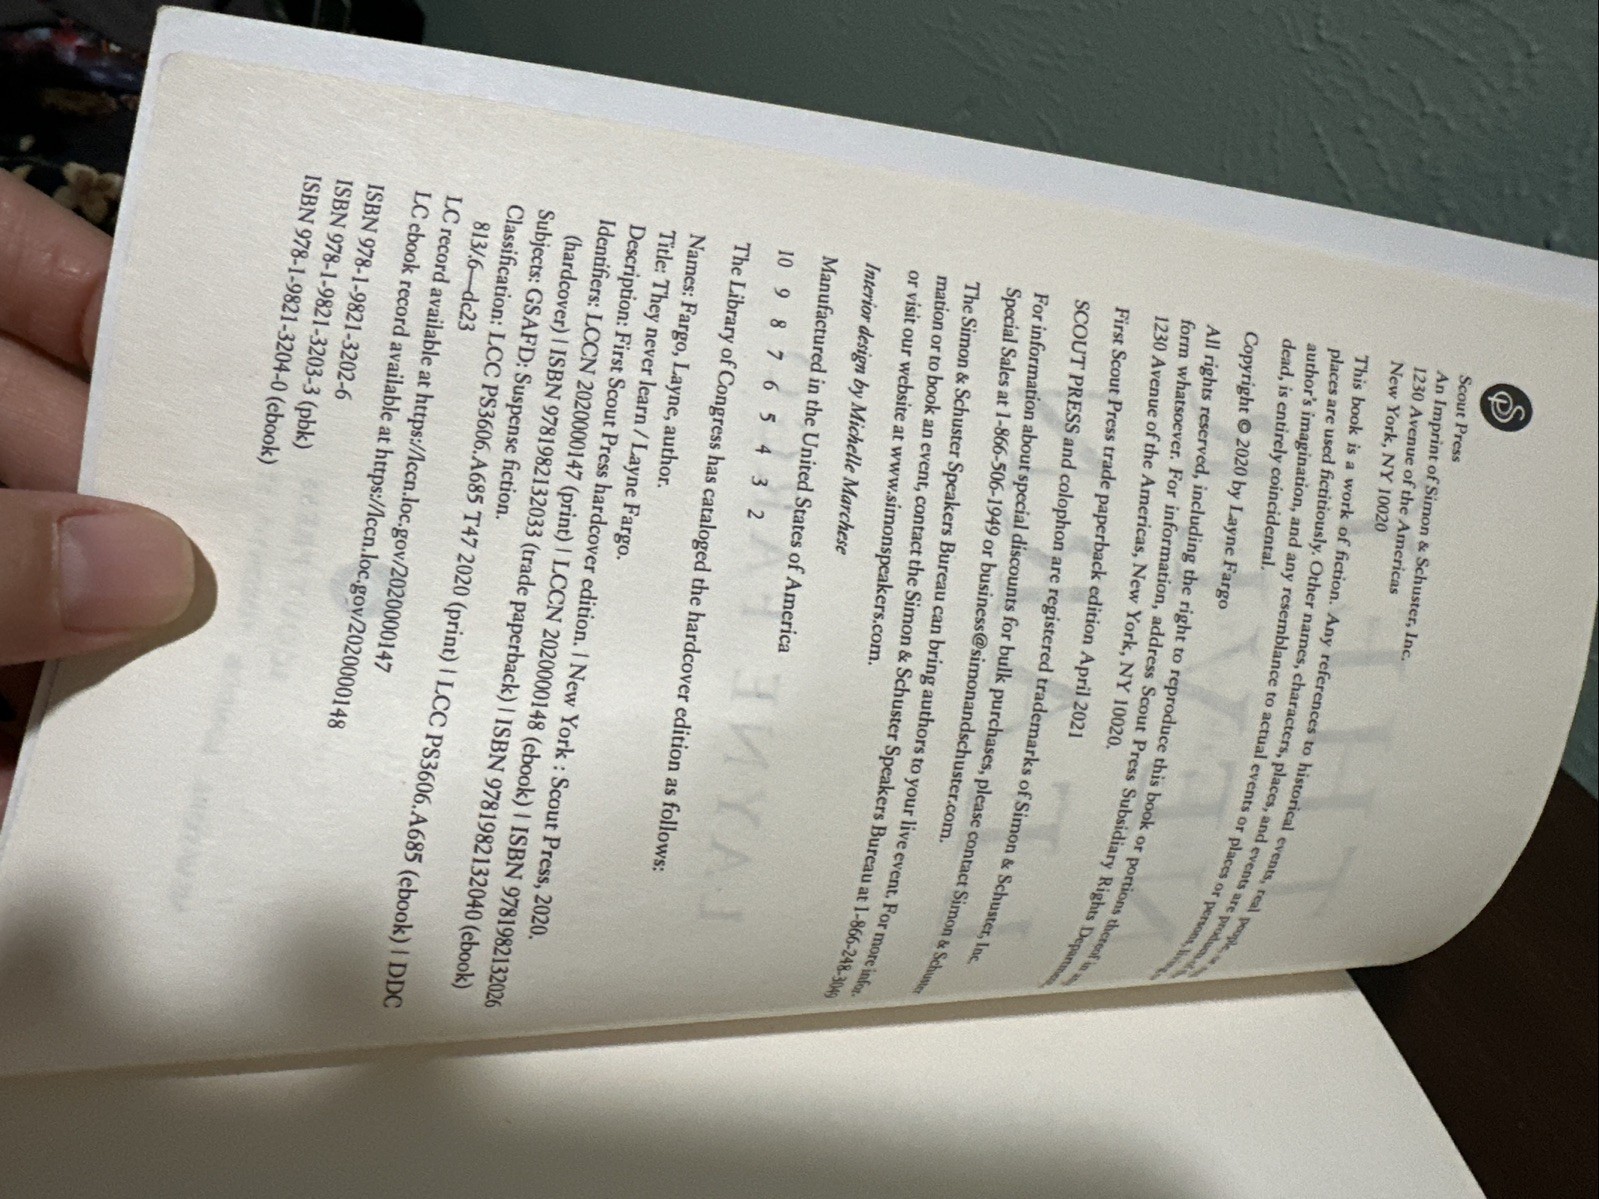 S
Scout Press
An Imprint of Simon & Schuster, Inc.
1230 Avenue of the Americas
New York, NY 10020
This book is a work of fiction. Any references to historical events, real people, or
places are used fictitiously. Other names, characters, places, and events are products of the
author's imagination, and any resemblance to actual events or places or persons, living or
dead, is entirely coincidental.
Copyright © 2020 by Layne Fargo
All rights reserved, including the right to reproduce this book or portions thereof in any
form whatsoever. For information, address Scout Press Subsidiary Rights Department,
1230 Avenue of the Americas, New York, NY 10020.
First Scout Press trade paperback edition April 2021
SCOUT PRESS and colophon are registered trademarks of Simon & Schuster, Inc
For information about special discounts for bulk purchases, please contact Simon & Schuster
Special Sales at 1-866-506-1949 or business@simonandschuster.com.
The Simon & Schuster Speakers Bureau can bring authors to your live event. For more infor-
mation or to book an event, contact the Simon & Schuster Speakers Bureau at 1-866-248-3049
or visit our website at www.simonspeakers.com.
Interior design by Michelle Marchese
Manufactured in the United States of America
10 9 8 7 6 5 4 3 2
The Library of Congress has cataloged the hardcover edition as follows:
Names: Fargo, Layne, author.
Title: They never learn / Layne Fargo.
Description: First Scout Press hardcover edition. | New York : Scout Press, 2020.
Identifiers: LCCN 2020000147 (print) | LCCN 2020000148 (ebook) | ISBN 9781982132026
(hardcover) | ISBN 9781982132033 (trade paperback) | ISBN 9781982132040 (ebook)
Subjects: GSAFD: Suspense fiction.
Classification: LCC PS3606.A685 T47 2020 (print) | LCC PS3606.A685 (ebook) | DDC
813/.6—dc23
LC record available at https://lccn.loc.gov/2020000147
LC ebook record available at https://lccn.loc.gov/2020000148
ISBN 978-1-9821-3202-6
ISBN 978-1-9821-3203-3 (pbk)
ISBN 978-1-9821-3204-0 (ebook)